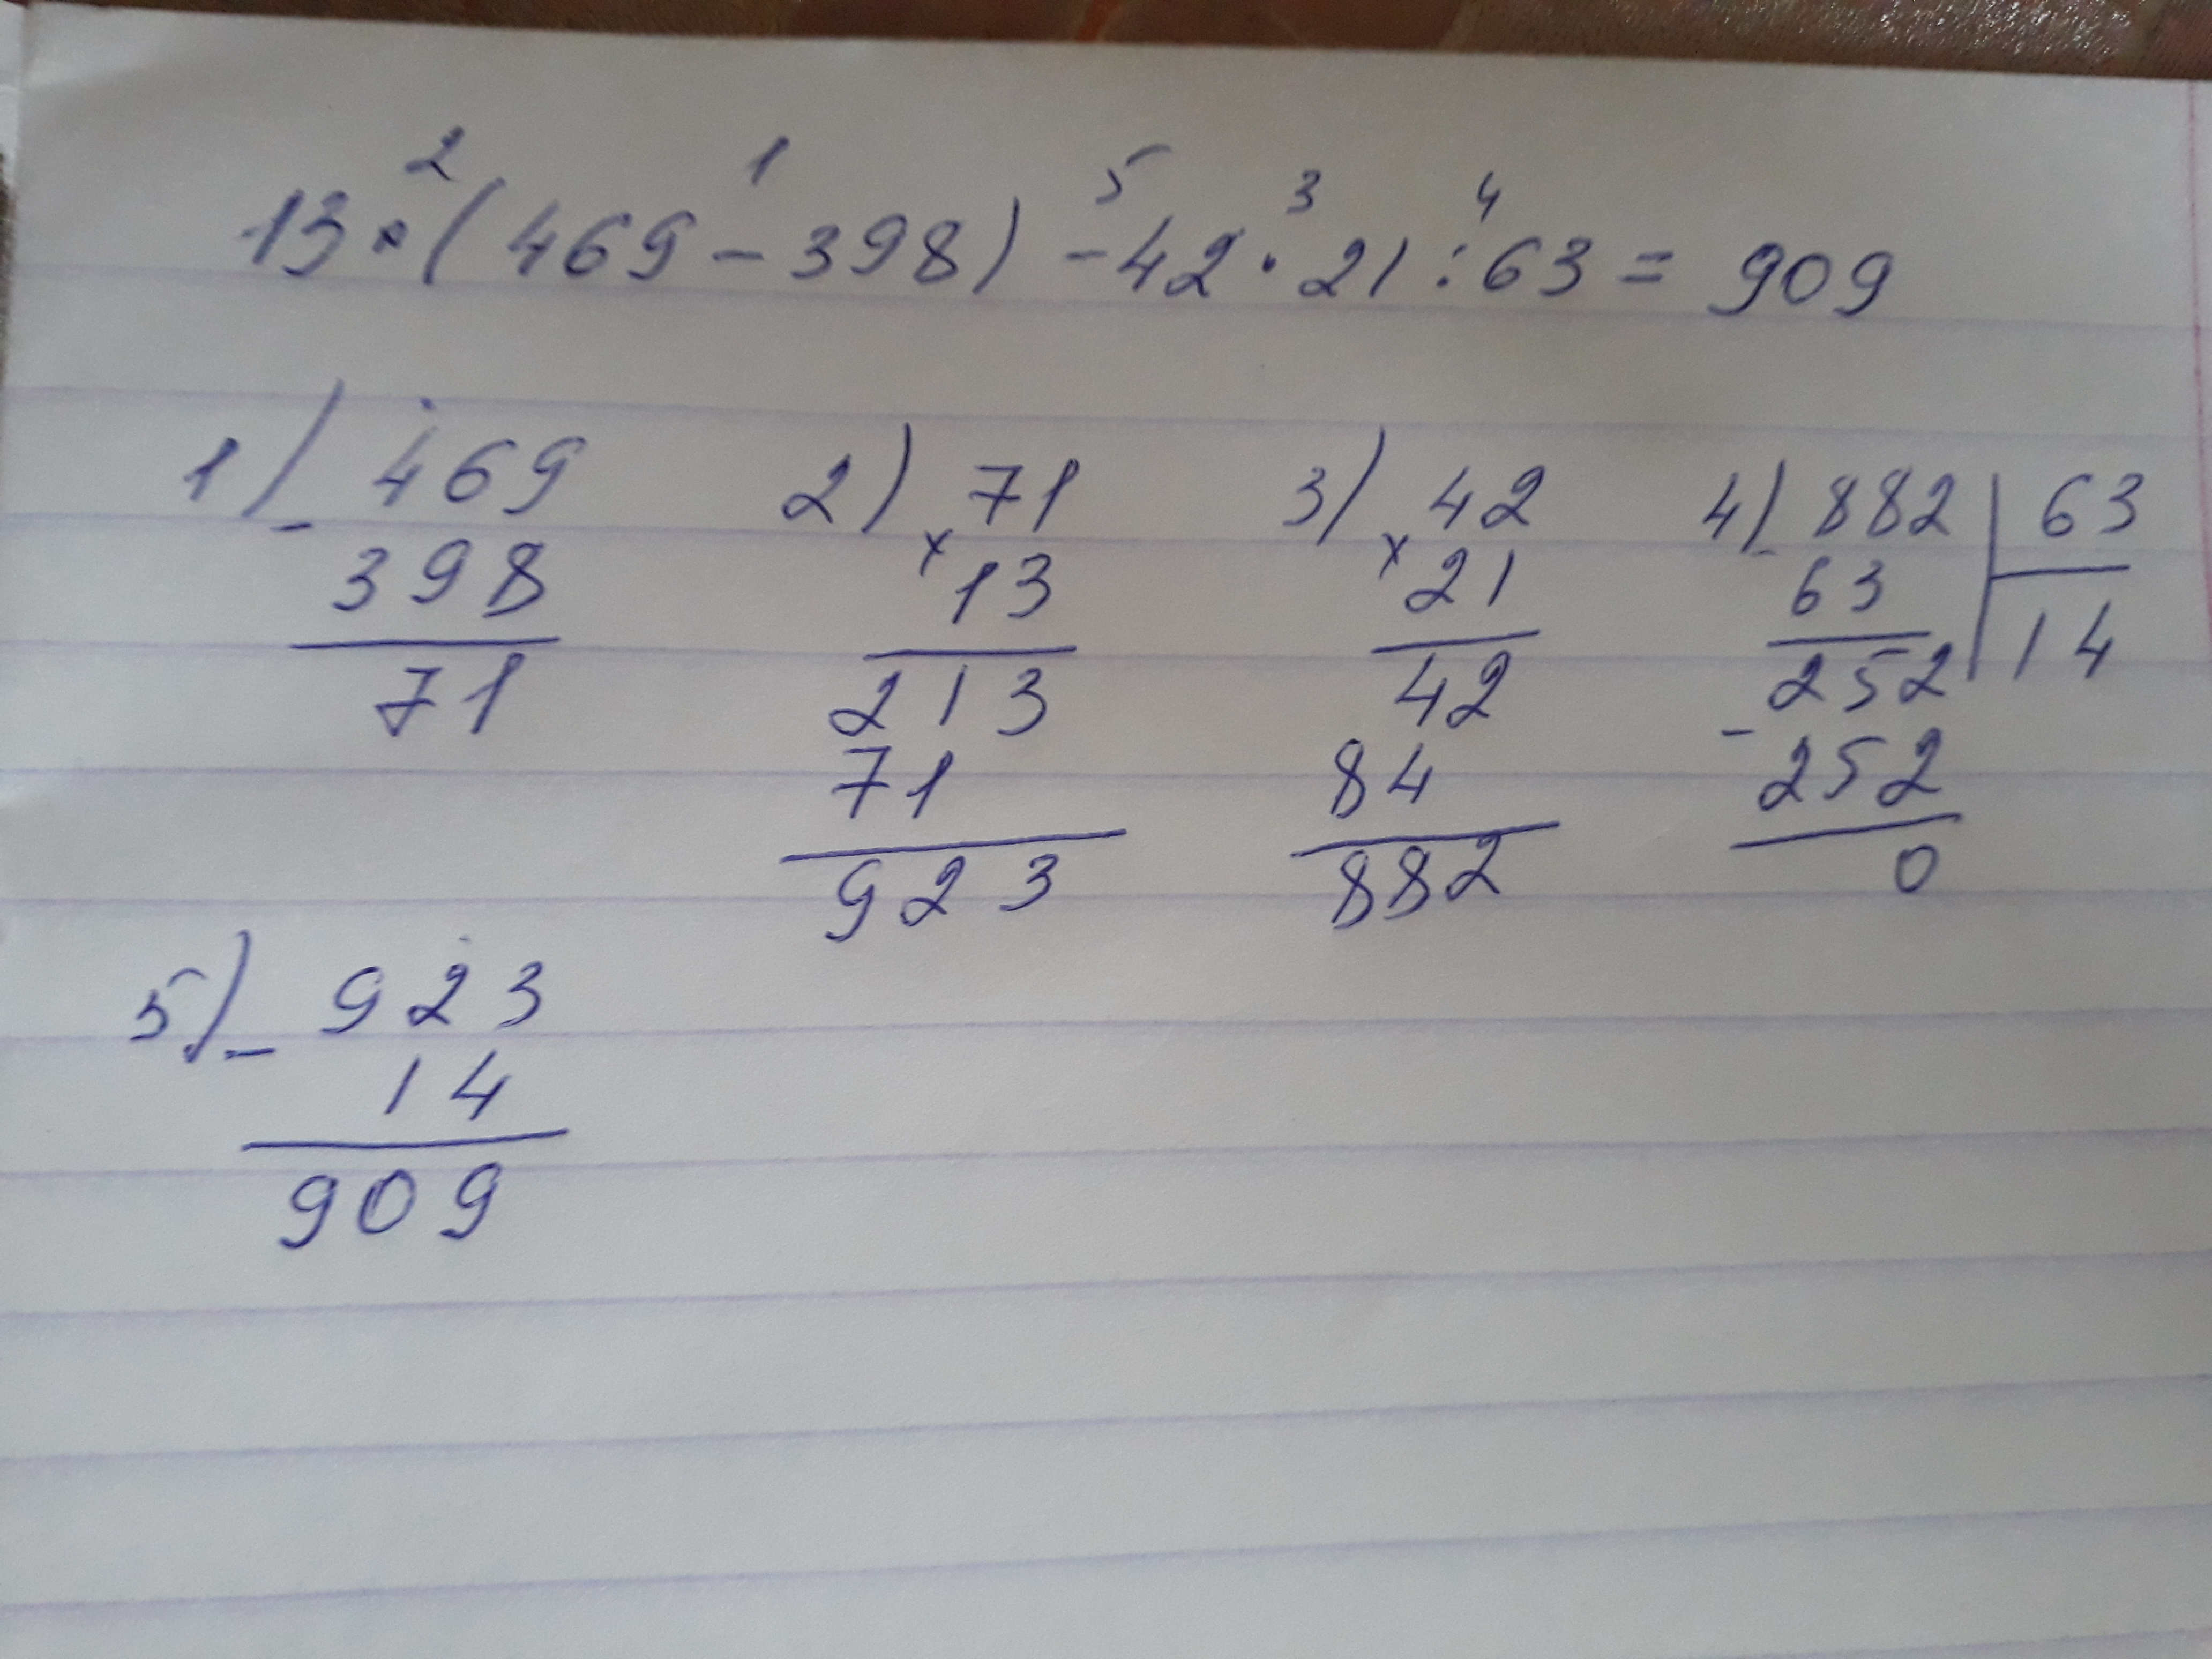 2 1 5 3 4
13 · (469 - 398) - 42 · 21 : 63 = 909
1) - 469
398
71
2) 71
× 13
213
71
923
3) 42
× 21
42
84
882
4) - 882 | 63
63 14
252
- 252
0
5) - 923
14
909